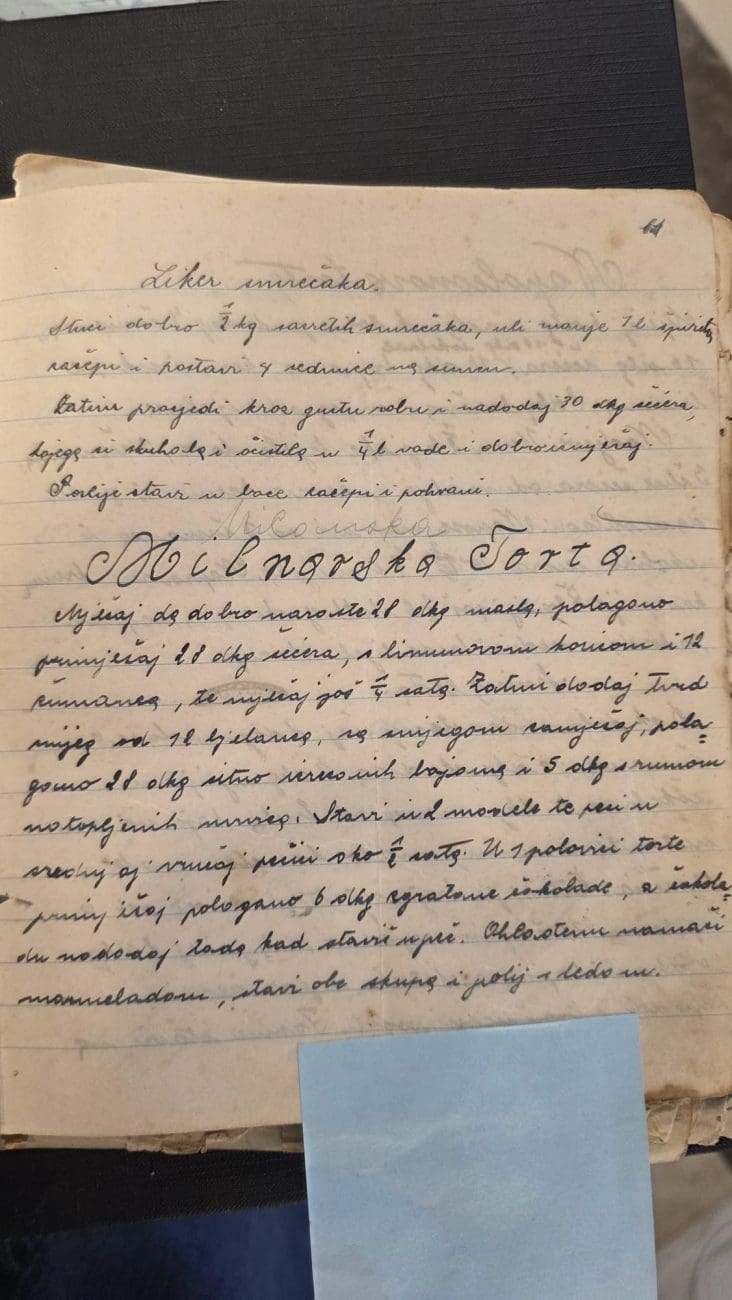 61
Liker smrečaka.
Stuci dobro 1/2 kg smrečaka, uli manje 1 l špirita,
začepi i postavi 4 sedmice na suncu.
Zatim procjedi kroz gustu robu i nadodaj 30 dkg šećera,
kojega si skuhala i očistila u 1/4 l vode i dobro izmješaj.
Poslije stavi u boce začepi i pohrani.
Milanska
Milnarska Torta.
Mješaj da dobro naraste 28 dkg masla, polagano
primješaj 28 dkg šećera, s limunovom koricom i 12
žumanca, te mješaj još 1/4 sata. Zatim dodaj tvrd
snijeg od 12 bjelanca, sa snijegom zamješaj, pola=
gano 28 dkg sitno bajama i 5 dkg s rumom
natopljenih mrvica. Stavi u 2 modele te peci u
srednjoj vrućoj pećici oko 1/2 sata. U 1 polovici torte
primješaj polagano 6 dkg sgratane čokolade, a čokola=
du nadodaj tada kad staviš u peć. Ohlađenu namaži
marmeladom, stavi obe skupa i polij s ledom.